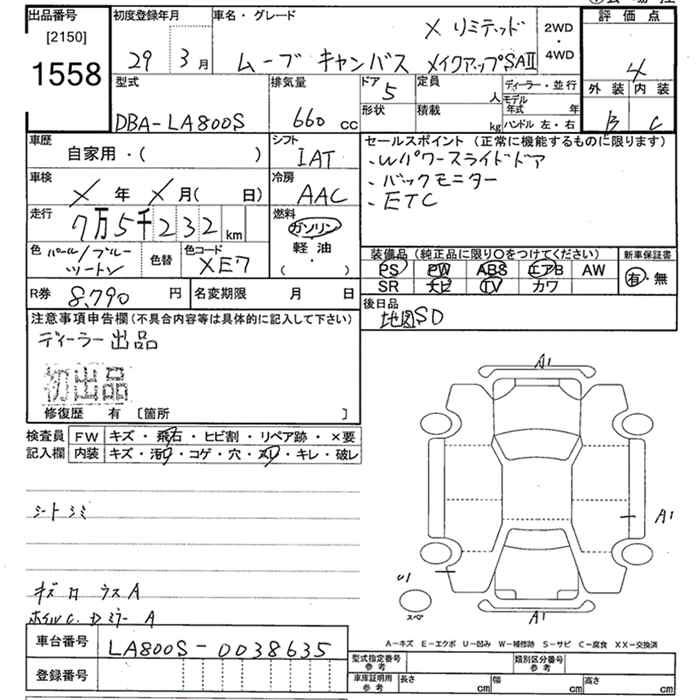 出品番号
[2150]
1558
初度登録年月
29 3月
車名・グレード
X リミテッド
ムーブ キャンバス メイクアップSAⅡ
2WD
・
4WD
評価点
4
外装 内装
B C
型式
DBA-LA800S
排気量
660 cc
ドア
5
形状
定員
人
積載
kg
ディーラー・並行
モデル年式 年
ハンドル 左・右
車歴
自家用・( )
シフト
IAT
車検
X年 X月( 日)
冷房
AAC
走行
7万5千232km
燃料
ガソリン
軽油
( ・ )
色 パール/ブルーツートン
色替
色コード
XE7
R券 8,790 円
名変期限 月 日
セールスポイント (正常に機能するものに限ります)
・Wパワースライドドア
・バックモニター
・ETC
装備品 (純正品に限り○をつけてください)
PS PW ABS エアB AW
SR ナビ TV カワ
新車保証書
有・無
後日品
地図SD
注意事項申告欄(不具合内容等は具体的に記入して下さい)
ディーラー出品
初出品
修復歴 有 [箇所 ]
検査員記入欄
FW キズ・飛石・ヒビ割・リペア跡・×要
内装 キズ・汚れ・コゲ・穴・スレ・キレ・破レ
シートシミ
キズ ロ ウスA
ホイルC. Dミラー A
A1
A1
U1
スペア
A1
A-キズ E-エクボ U-凹み W-補修跡 S-サビ C-腐食 XX-交換済
車台番号 LA800S-0038635
登録番号
型式指定番号
参考
類別区分番号
参考
車庫証明用
参考
長さ cm 幅 cm 高さ cm